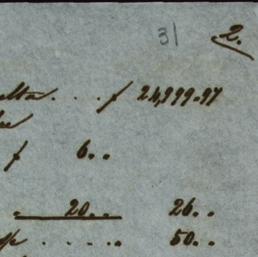 31 2.
elta . . . . f 24,999.97
f 6..
20.. 26..
. . . . . 50..